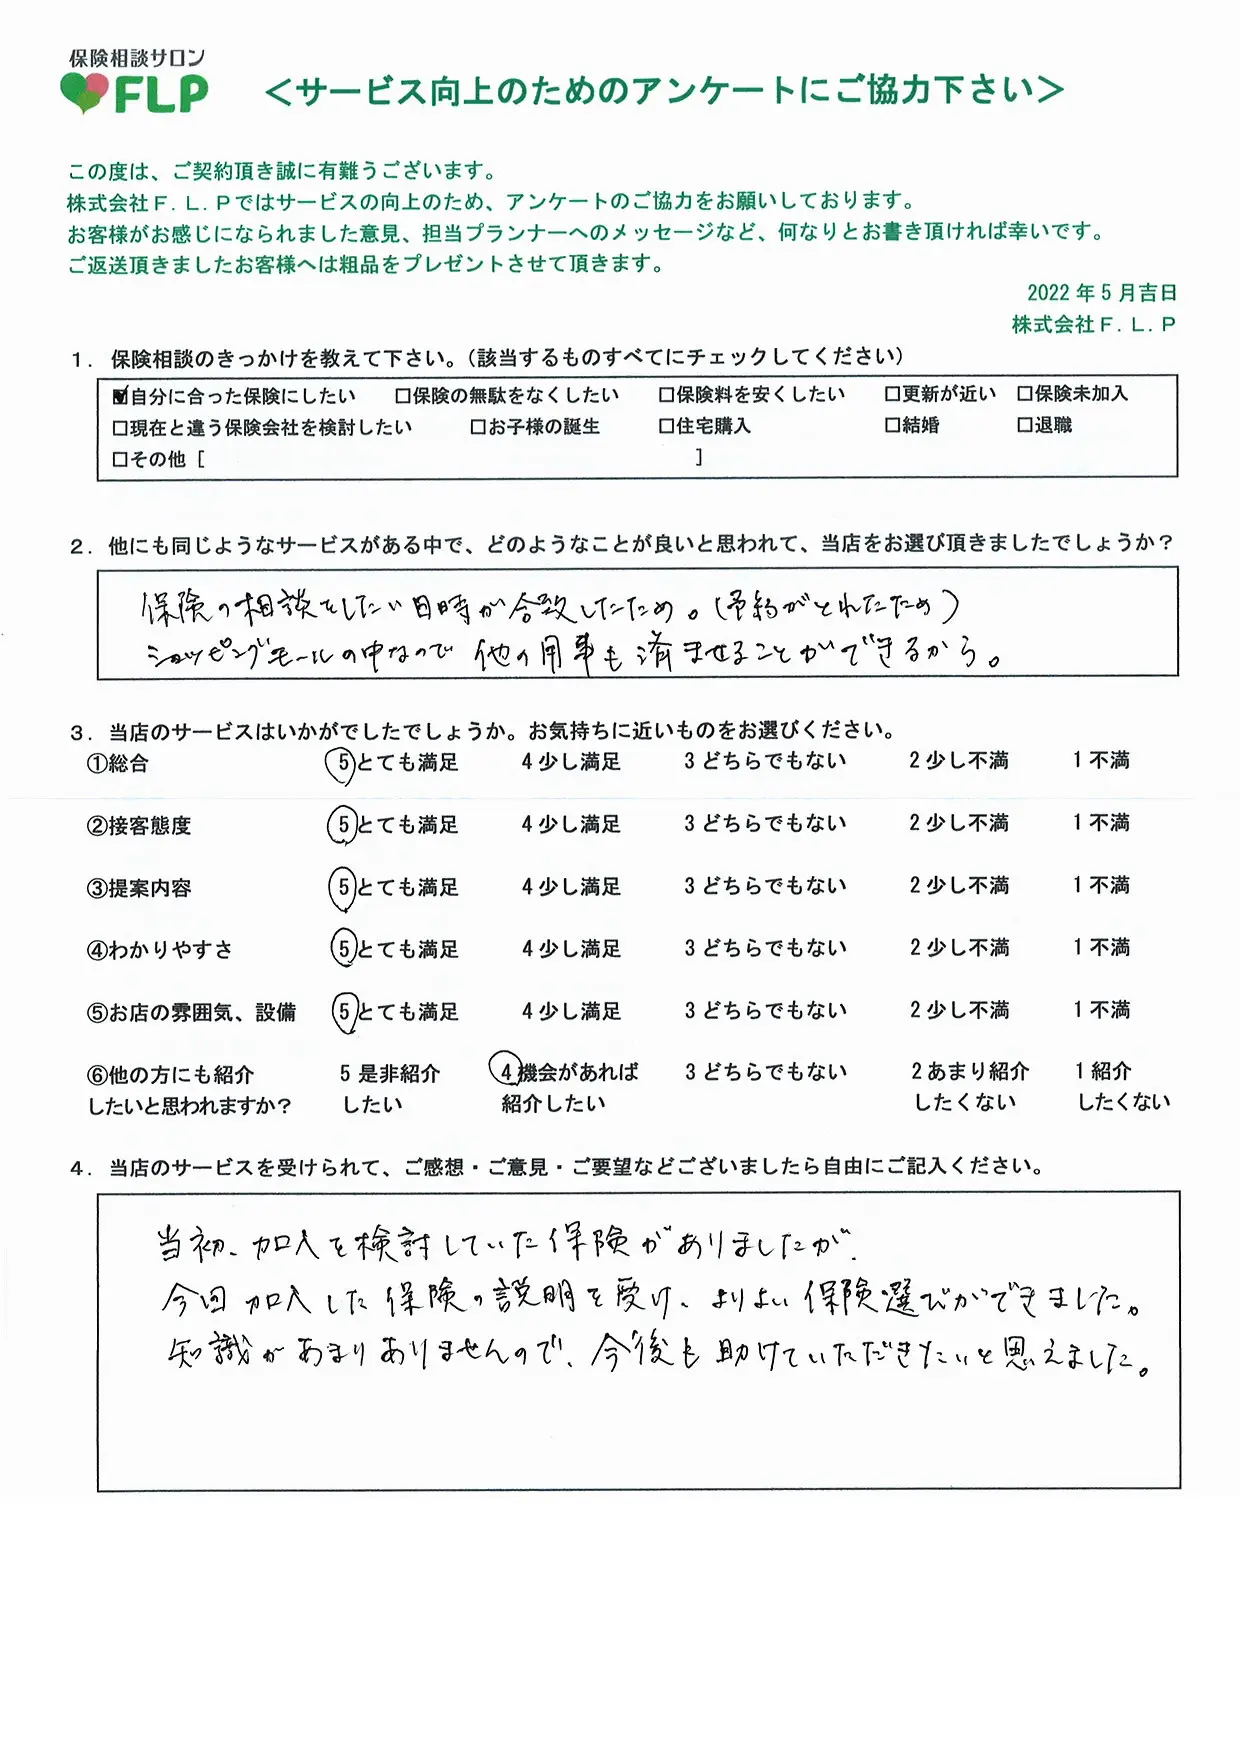 保険相談サロン
FLP
＜サービス向上のためのアンケートにご協力下さい＞
この度は、ご契約頂き誠に有難うございます。
株式会社Ｆ．Ｌ．Ｐではサービスの向上のため、アンケートのご協力をお願いしております。
お客様がお感じになられました意見、担当プランナーへのメッセージなど、何なりとお書き頂ければ幸いです。
ご返送頂きましたお客様へは粗品をプレゼントさせて頂きます。
2022 年 5 月吉日
株式会社Ｆ．Ｌ．Ｐ
１．保険相談のきっかけを教えて下さい。（該当するものすべてにチェックしてください）
☑自分に合った保険にしたい □保険の無駄をなくしたい □保険料を安くしたい □更新が近い □保険未加入
□現在と違う保険会社を検討したい □お子様の誕生 □住宅購入 □結婚 □退職
□その他［ ］
２．他にも同じようなサービスがある中で、どのようなことが良いと思われて、当店をお選び頂きましたでしょうか？
保険の相談をしたい日時が合致したため。（予約がとれたため）
ショッピングモールの中なので 他の用事も済ませることができるから。
３．当店のサービスはいかがでしたでしょうか。お気持ちに近いものをお選びください。
①総合 5 とても満足 4 少し満足 3 どちらでもない 2 少し不満 1 不満
②接客態度 5 とても満足 4 少し満足 3 どちらでもない 2 少し不満 1 不満
③提案内容 5 とても満足 4 少し満足 3 どちらでもない 2 少し不満 1 不満
④わかりやすさ 5 とても満足 4 少し満足 3 どちらでもない 2 少し不満 1 不満
⑤お店の雰囲気、設備 5 とても満足 4 少し満足 3 どちらでもない 2 少し不満 1 不満
⑥他の方にも紹介 5 是非紹介 4 機会があれば 3 どちらでもない 2 あまり紹介 1 紹介
したいと思われますか？ したい 紹介したい したくない したくない
４．当店のサービスを受けられて、ご感想・ご意見・ご要望などございましたら自由にご記入ください。
当初、加入を検討していた保険がありましたが、
今回加入した保険の説明を受け、よりよい保険選びができました。
知識があまりありませんので、今後も助けていただきたいと思えました。